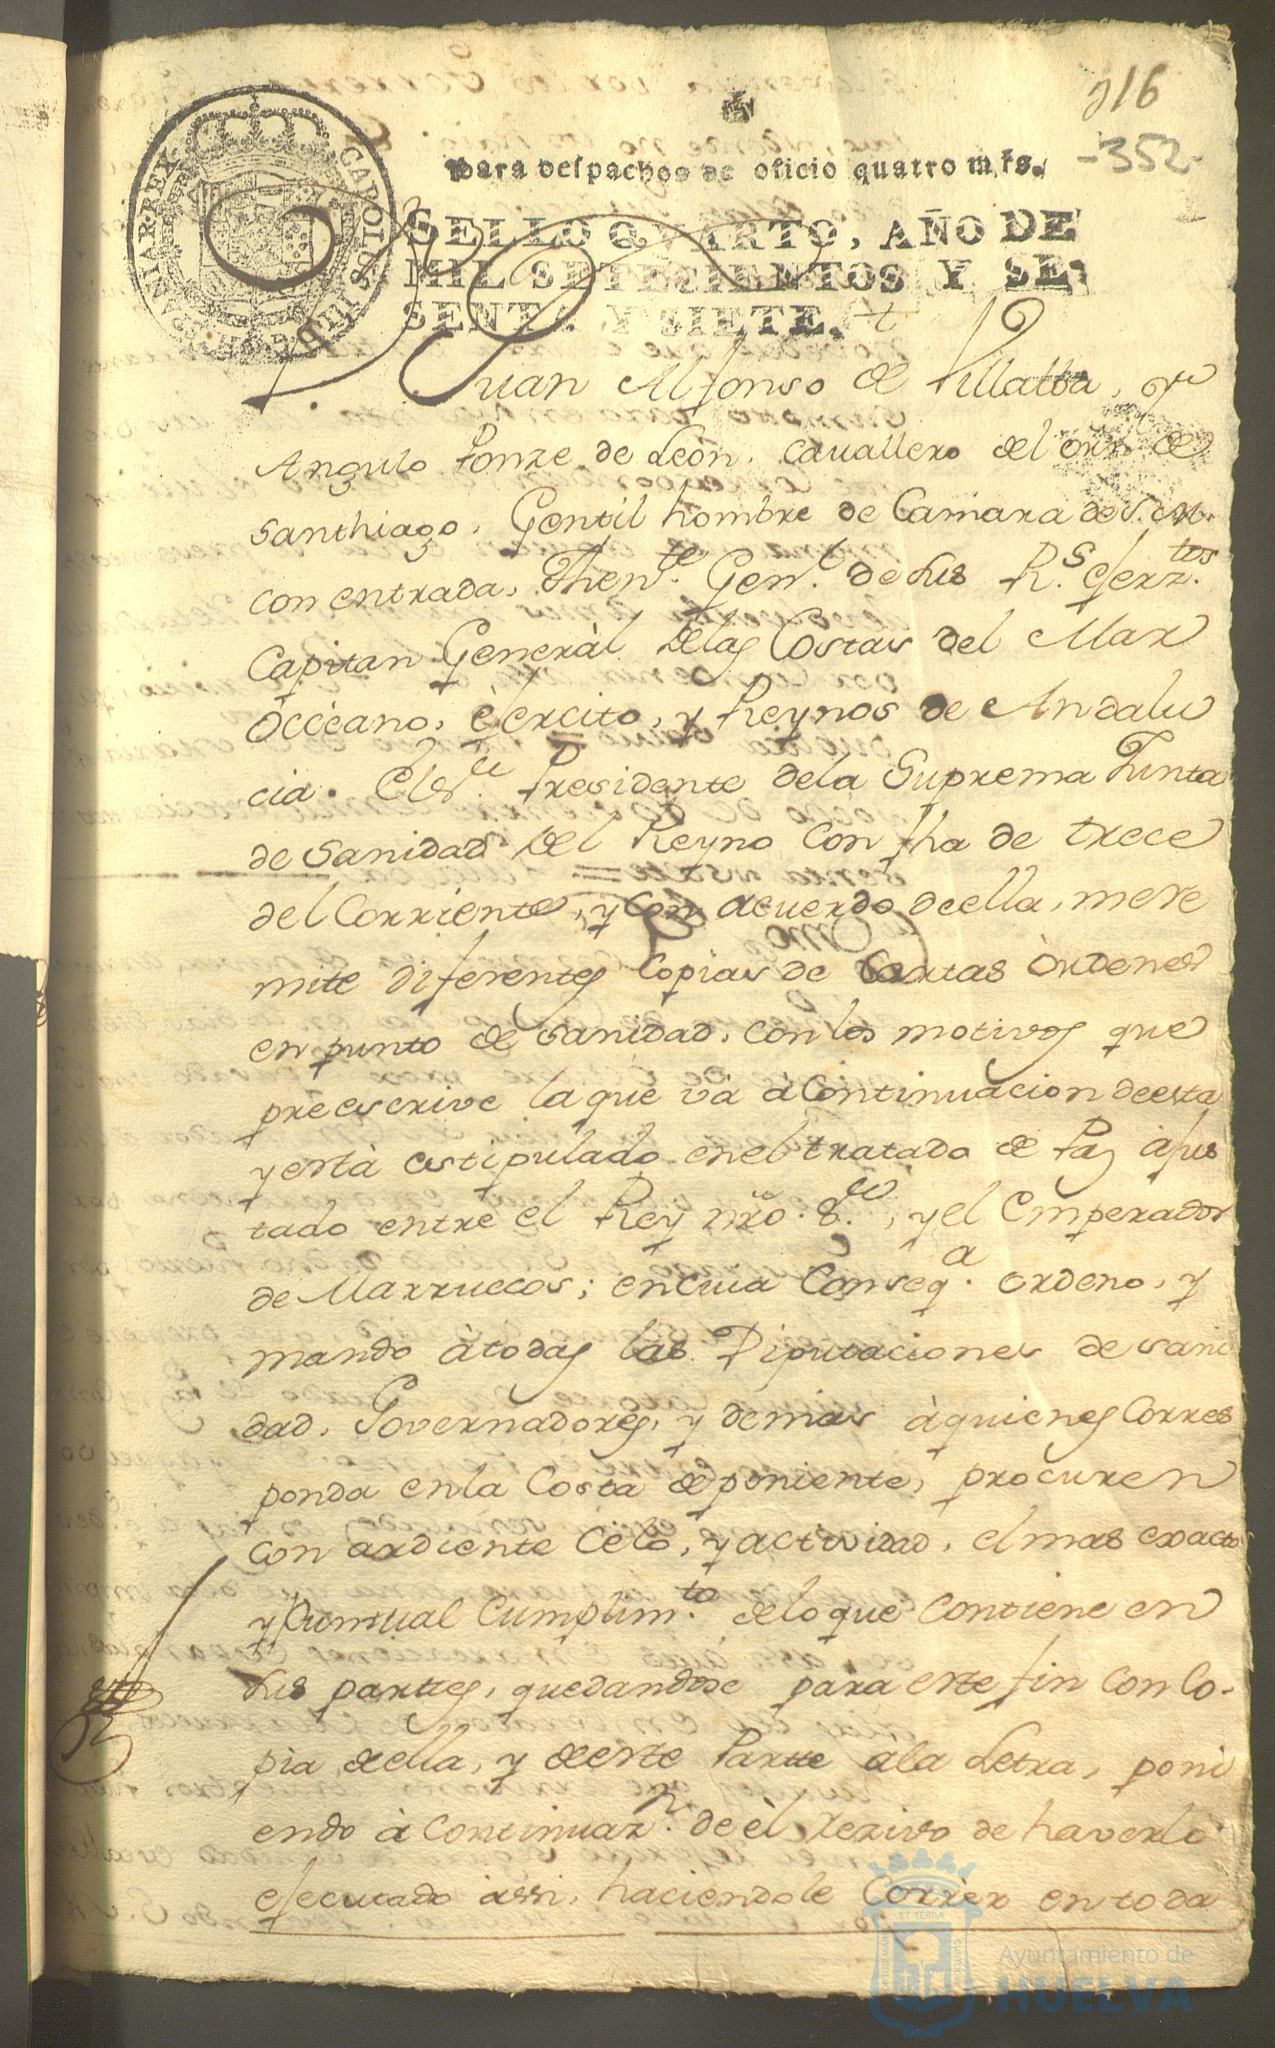 316
-352-
Para despachos de oficio quatro mrs.
SELLO QVARTO, AÑO DE
MIL SETECIENTOS Y SE
SENTA Y SIETE.
CAROLUS III D G HISPANIAR REX
Juan Alfonso de Villalba, y
Angulo Ponze de León. Cavallero del orn de
Santhiago, Gentil hombre de Camara de S. M.
con entrada, Thente. Genl. de sus Rs. Exerztos.
Capitan Generàl delas Costas del Mar
Occèano, èjercito, y Reynos de Andalu
cia. El Sr. Presidente dela Suprema Junta
de Sanidad del Reyno con fha de trece
del Corriente, y con acuerdo deella, mere
mite diferentes Copias de Cartas òrdenes
en punto de Sanidad, con los motivos que
preescrive la que và à Continuacion deesta
y està estipulado enel tratado de Paz ajus
tado entre el Rey nro. Sr., y el Emperador
de Marruecos; encuia Conseqa. ordeno, y
mando àtodas las Diputaciones de Sani
dad, Governadores, y demas àquienes Corres
ponda enla Costa de poniente, procuren
con ardiente Celo, y actividad, el mas exacto
y Puntual Cumplimto. delo que Contiene en
sus parttes, quedandose para este fin con Co-
pia deella, y deeste Partte ala Letra, poni
endo à Continuazn. de èl Rezivo de haverlo
ejecutado assi, haciendole Corrèr en toda
Ayuntamiento de
HUELVA